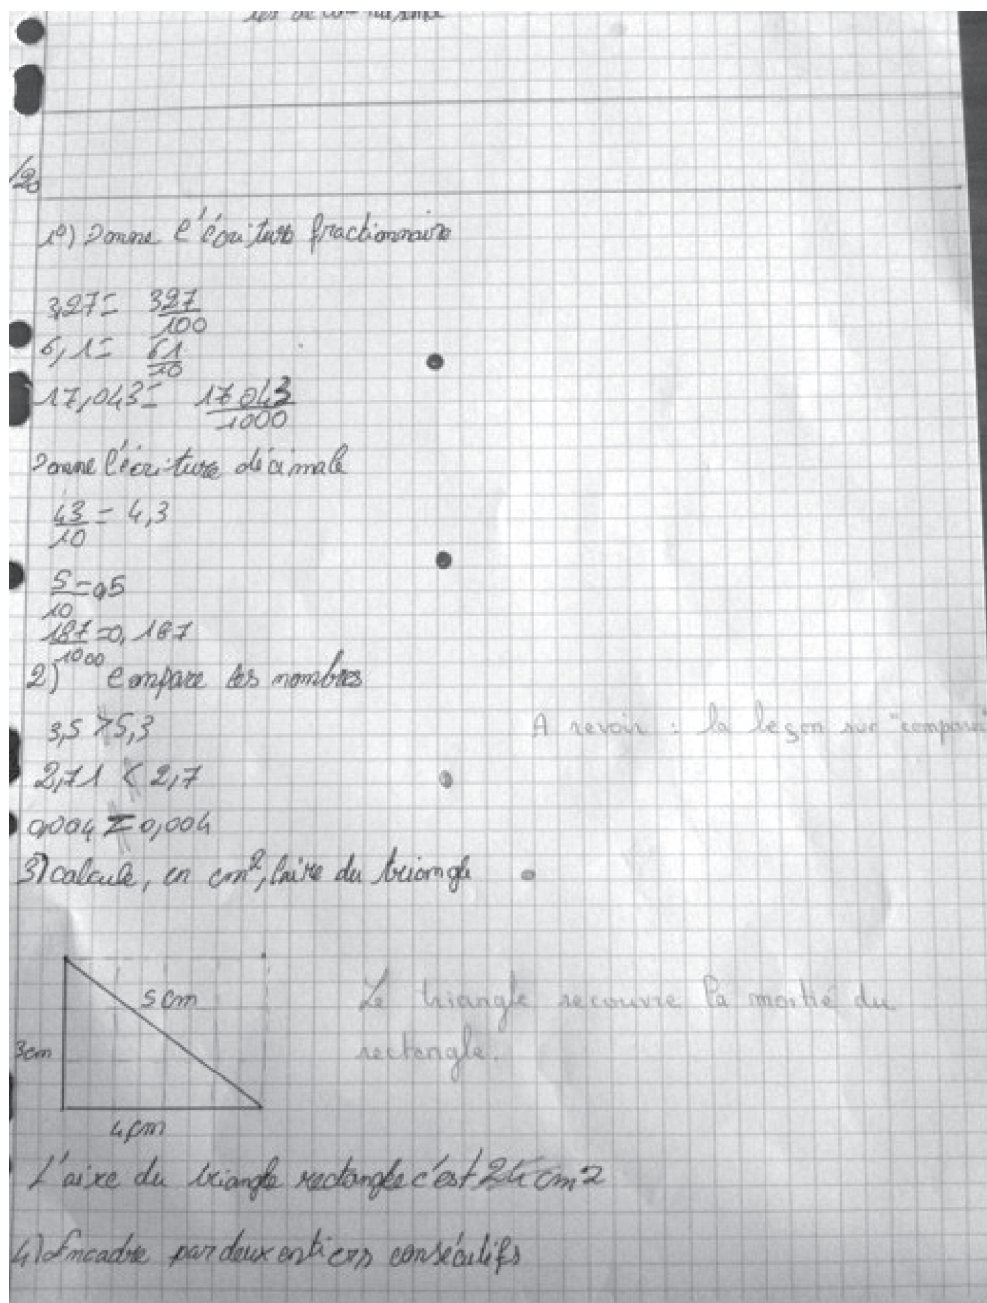 /20
1°) Donne l'écriture fractionnaire
3,27 = 327/100
6,1 = 61/10
17,043 = 17 043/1000
Donne l'écriture décimale
43/10 = 4,3
5/10 = 0,5
187/1000 = 0,187
2) Compare les nombres
3,5 > 5,3
A revoir : la leçon sur "compare
2,71 < 2,7
0,004 = 0,004
3) calcule, en cm², l'aire du triangle
5 cm
Le triangle recouvre la moitié du
rectangle.
3cm
4 cm
L'aire du triangle rectangle c'est cm2
4) Encadre par deux entiers consécutifs